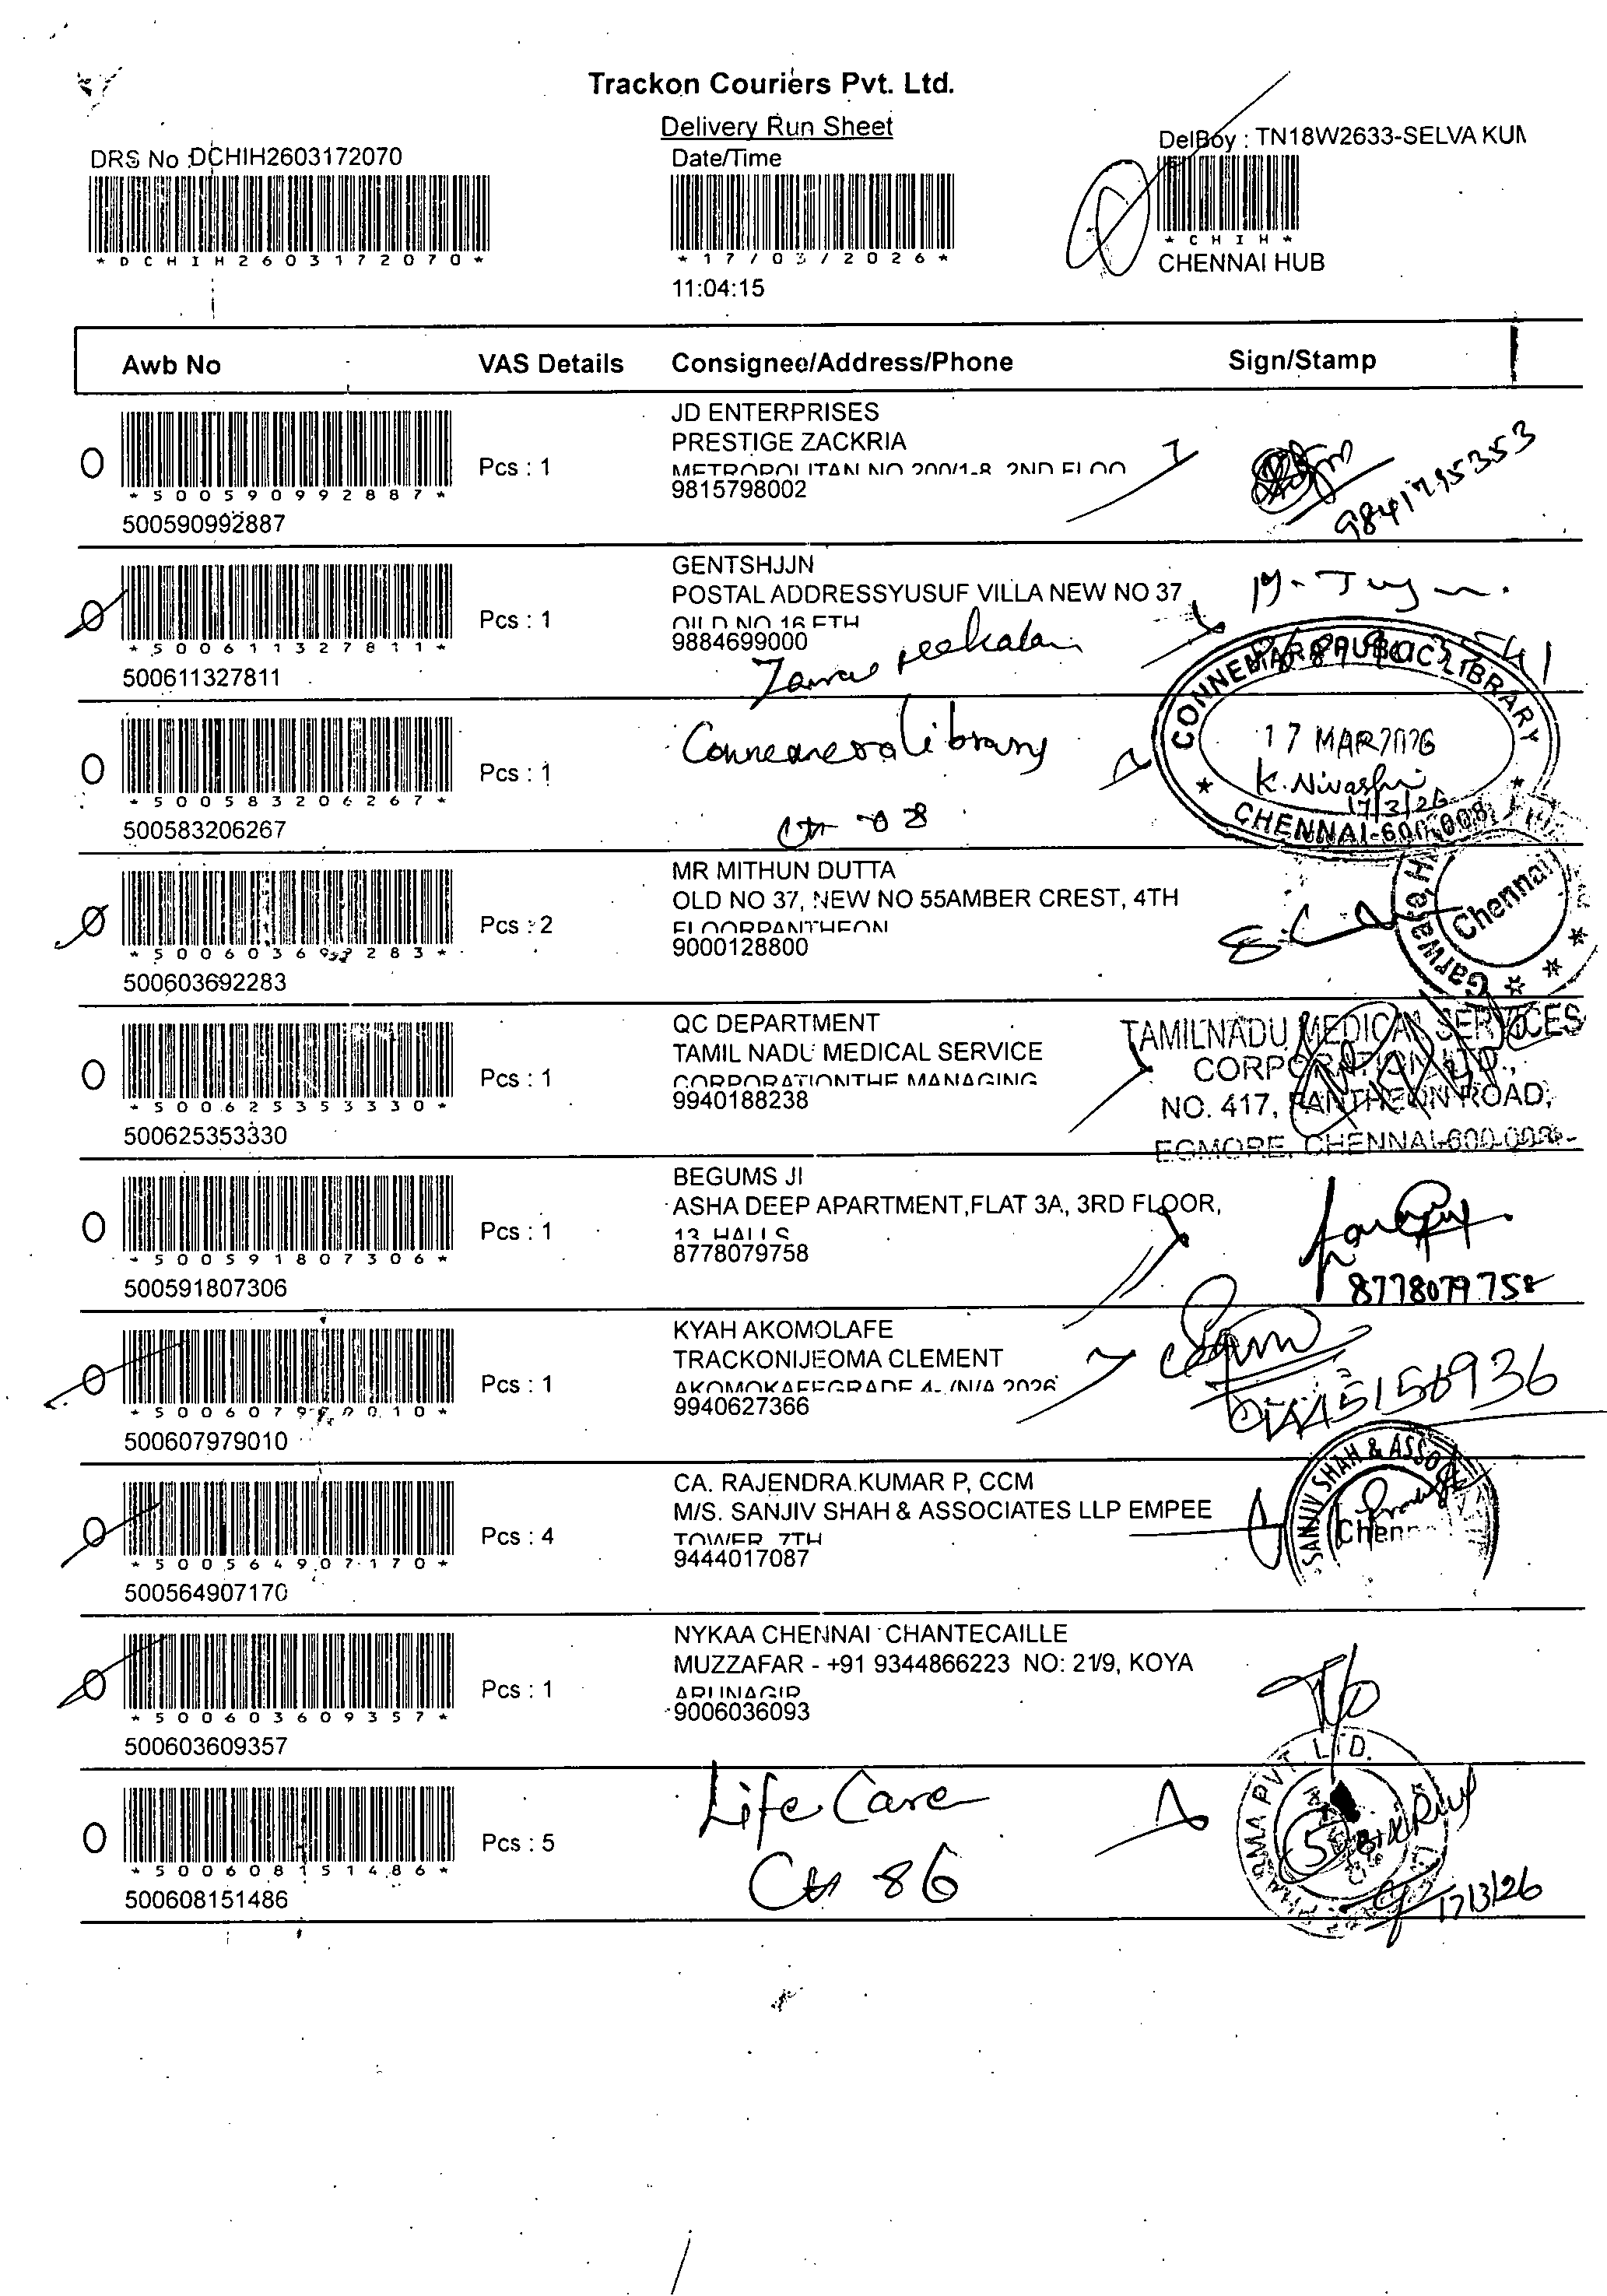 Trackon Couriers Pvt. Ltd.
Delivery Run Sheet
DRS No :DCHIH2603172070
Date/Time
DelBoy : TN18W2633-SELVA KUM
*DCHIH2603172070*
*17/03/2026*
*CHIH*
CHENNAI HUB
11:04:15
Awb No VAS Details Consignee/Address/Phone Sign/Stamp
JD ENTERPRISES
PRESTIGE ZACKRIA
METROPOLITAN NO 200/1-8, 2ND FLOO
Pcs : 1
*500590992887*
9815798002
9841795353
500590992887
GENTSHJJN
POSTAL ADDRESSYUSUF VILLA NEW NO 37
OILD NO 16 ETH
Pcs : 1
*500611327811*
9884699000
500611327811
Conneamera Library
CONNEMARA PUBLIC LIBRARY
17 MAR 2026
K. Nivashri
17/3/26
CHENNAI-600 008
Pcs : 1
*500583206267*
500583206267
08
MR MITHUN DUTTA
OLD NO 37, NEW NO 55AMBER CREST, 4TH
FLOORPANTHEON
Pcs : 2
*500603692283*
9000128800
Garware
Chennai
500603692283
QC DEPARTMENT
TAMIL NADU MEDICAL SERVICE
CORPORATIONTHE MANAGING
Pcs : 1
*500625353330*
9940188238
500625353330
TAMILNADU MEDICAL SERVICES
CORPORATION LTD.,
NO. 417, PANTHEON ROAD,
EGMORE, CHENNAI-600 008.
BEGUMS JI
ASHA DEEP APARTMENT,FLAT 3A, 3RD FLOOR,
13 HALLS
Pcs : 1
*500591807306*
8778079758
500591807306
8778079758
KYAH AKOMOLAFE
TRACKONIJEOMA CLEMENT
AKOMOKAFEGRADE 4- /N/A 2026
Pcs : 1
*500607979010*
9940627366
500607979010
CA. RAJENDRA KUMAR P, CCM
M/S. SANJIV SHAH & ASSOCIATES LLP EMPEE
TOWER, 7TH
Pcs : 4
*500564907170*
9444017087
500564907170
SANJIV SHAH & ASSO
Chenn
NYKAA CHENNAI CHANTECAILLE
MUZZAFAR - +91 9344866223 NO: 21/9, KOYA
ARUNAGIR
Pcs : 1
*500603609357*
9006036093
500603609357
Life Care
PHARMA PVT. LTD.
Pcs : 5
*500608151486*
86
5
17/3/26
500608151486